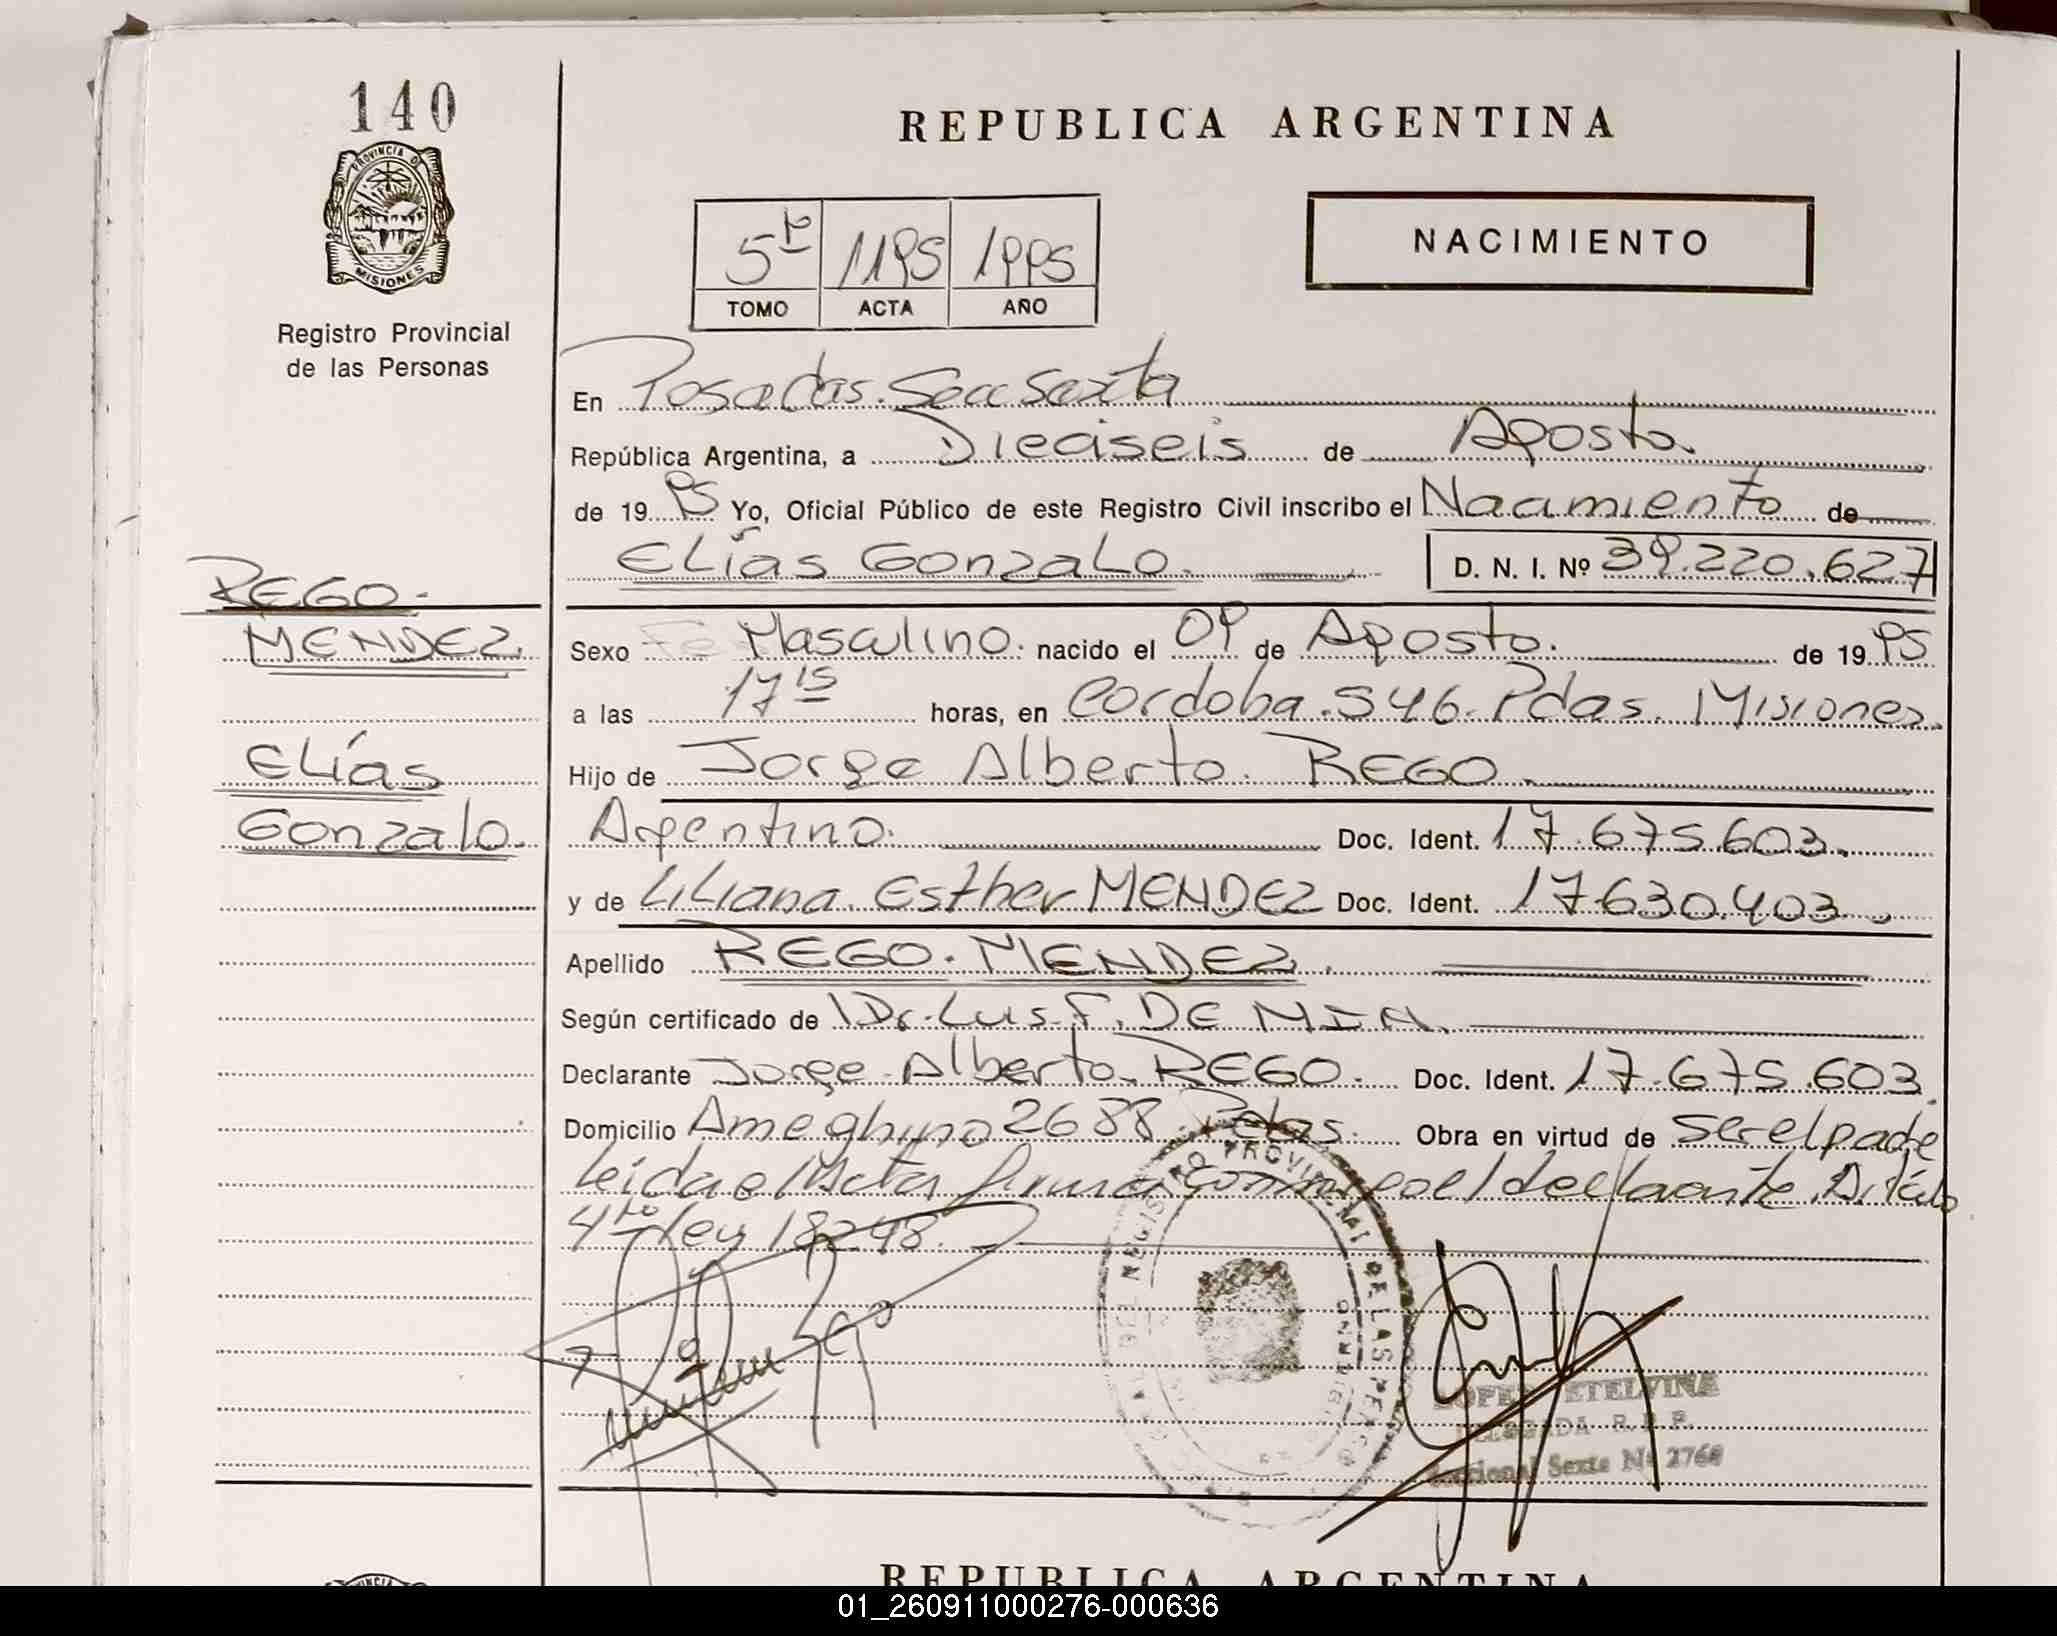 140
PROVINCIA DE
MISIONES
Registro Provincial
de las Personas
REPUBLICA ARGENTINA
NACIMIENTO
5to 1195 1995
TOMO ACTA AÑO
En Posadas. Secc Sexta
República Argentina, a Dieciseis de Agosto.
de 19 95 Yo, Oficial Público de este Registro Civil inscribo el Nacimiento de
ELías Gonzalo. D. N. I. Nº 39.220.627
REGO.
MENDEZ.
ELías
Gonzalo.
Sexo Masculino. nacido el 09 de Agosto. de 19 95
a las 17 15 horas, en Cordoba. 546. Pdas. Misiones.
Hijo de Jorge Alberto. REGO.
Argentino. Doc. Ident. 17.675.603.
y de Liliana. Esther MENDEZ Doc. Ident. 17.630.403.
Apellido REGO. MENDEZ.
Según certificado de Dr. Luis. F. DE MIN.
Declarante Jorge Alberto. REGO. Doc. Ident. 17.675.603.
Domicilio Ameghino 2688 Pdas. Obra en virtud de ser el padre
Leída el Acta firman conmigo el declarante.
4to ley 18248.
REGISTRO PROVINCIAL DE LAS PERSONAS
LOPEZ ETELVINA
DELEGADA R. P. P.
Seccional Sexta Nº 2760
REPUBLICA ARGENTINA
01_260911000276-000636